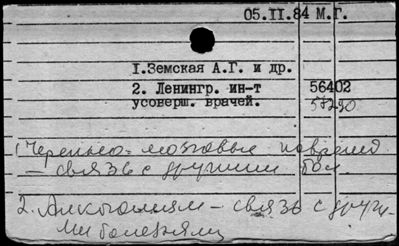 05.II.84 М.Г.
I.Земская А.Г. и др.
2. Ленингр. ин-т 56402
усоверш. врачей. 57290
1 Черепно-мозговые поврежд
– связь с другими бол.
2. Алкоголизм – связь с други-
ми болезнями